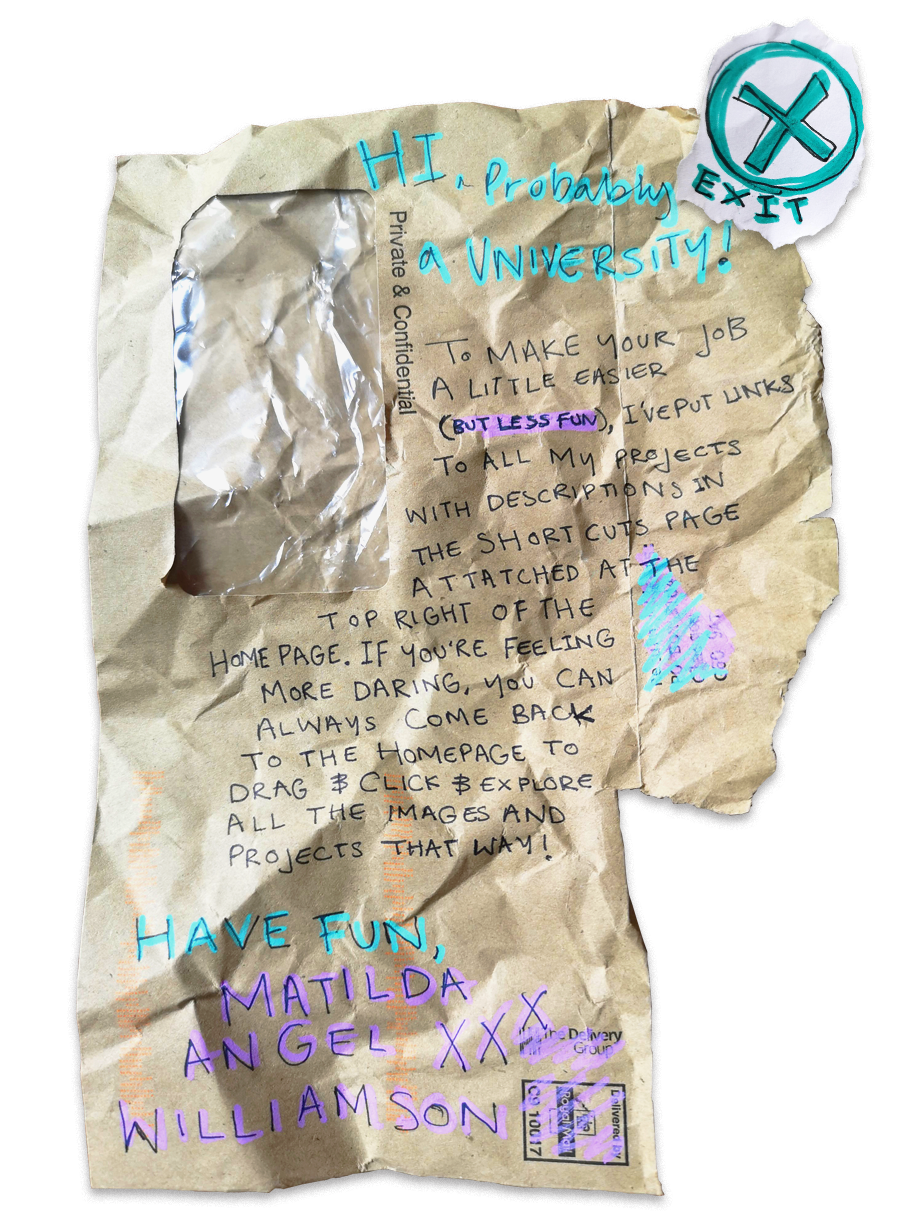 HI, Probably
a UNIVERSITY!
EXIT
Private & Confidential
To MAKE YOUR JOB
A LITTLE EASIER
(BUT LESS FUN), I'VE PUT LINKS
To ALL My PROJECTS
WITH DESCRIPTIONS IN
THE SHORT CUTS PAGE
ATTATCHED AT THE
TOP RIGHT OF THE
HOME PAGE. IF YOU'RE FEELING
MORE DARING, YOU CAN
ALWAYS COME BACK
TO THE HOMEPAGE TO
DRAG & CLICK & EXPLORE
ALL THE IMAGES AND
PROJECTS THAT WAY!
HAVE FUN,
MATILDA
ANGEL XXX
WILLIAMSON
The Delivery
Group
Delivered by
Royal Mail
C9 10017